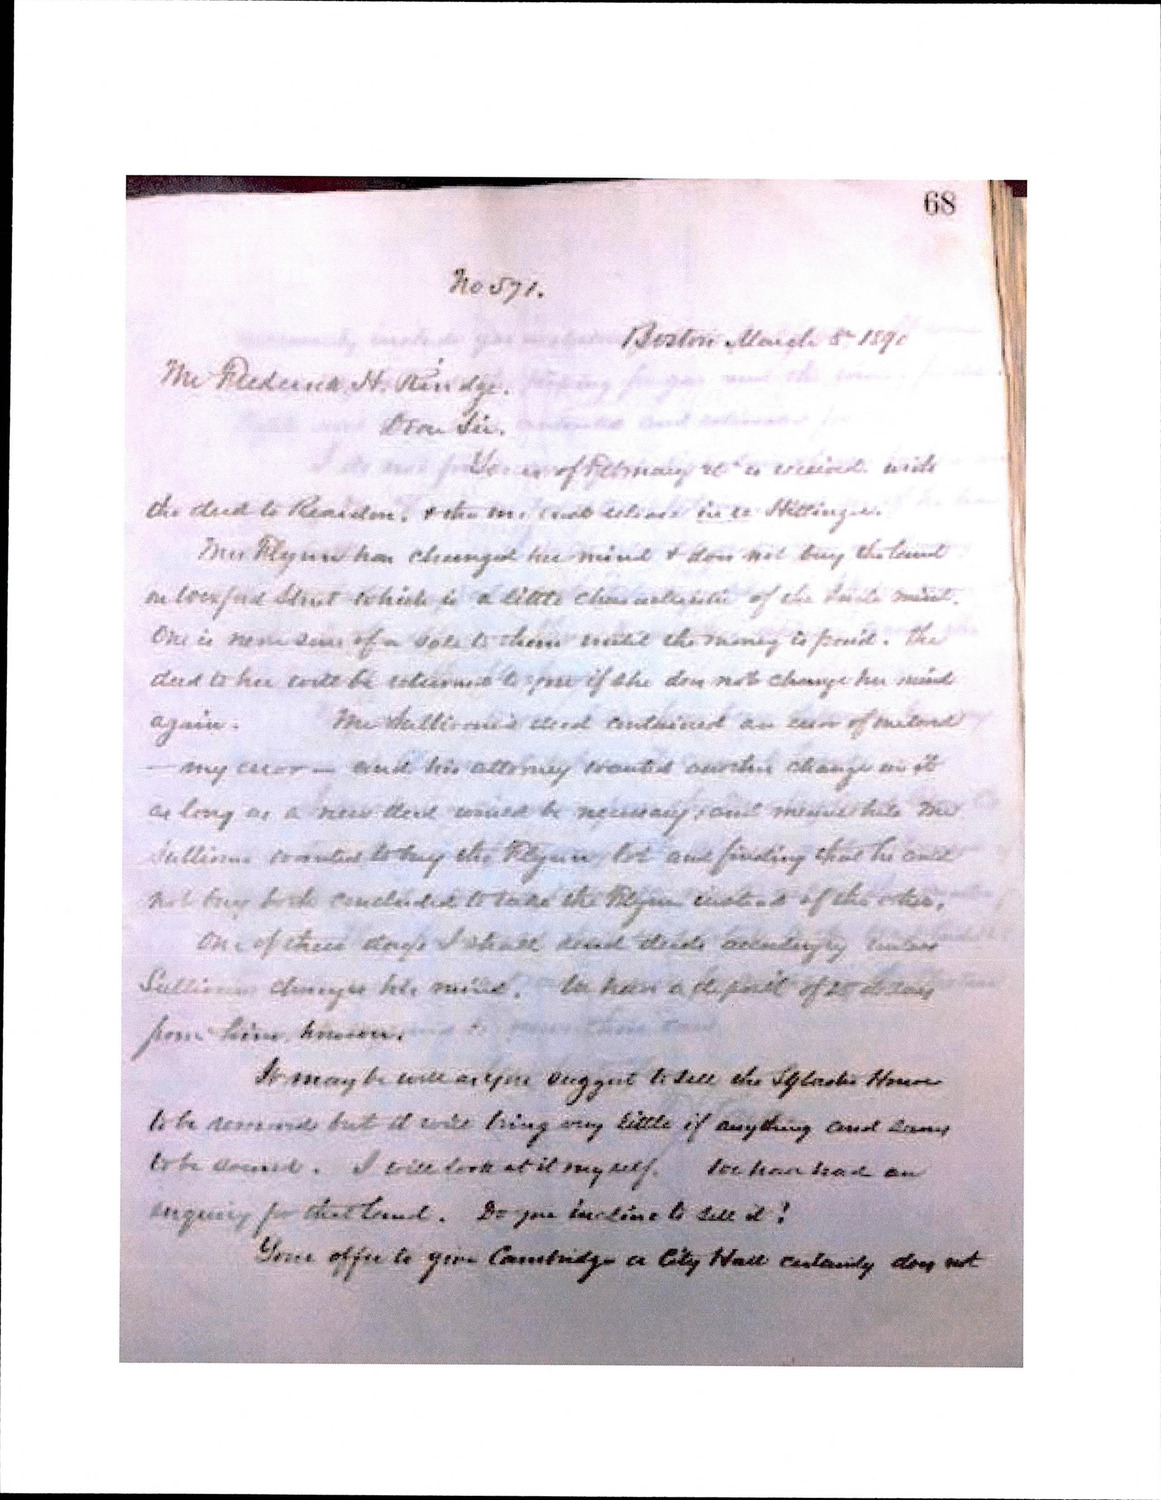 68
No 571.
Boston March 8th 1890
Mr Frederick H. Rindge.
Dear Sir.
Yours of February is received with
the deed to Reardon, & the release in re Hittinger.
Mrs Flynn has changed her mind & does not buy the land
on Street which is a little characteristic of the mind.
One is never sure of a sale to them until the money is paid. The
deed to her will be returned to you if she does not change her mind
again. Mr Sullivan's deed contained an error of
— my error — and his attorney wanted another change in it
as long as a new deed would be necessary, and meanwhile Mr
Sullivan wanted to buy the Flynn lot and finding that he could
not buy both concluded to take the Flynn instead of the other.
One of these days I shall send deeds accordingly unless
Sullivan changes his mind. We have a deposit of dollars
from him, however.
It may be well as you suggest to sell the House
to be removed but it will bring very little if anything and
to be . I will look at it myself. We have had an
enquiry for that land. Do you incline to sell it?
Your offer to give Cambridge a City Hall certainly does not